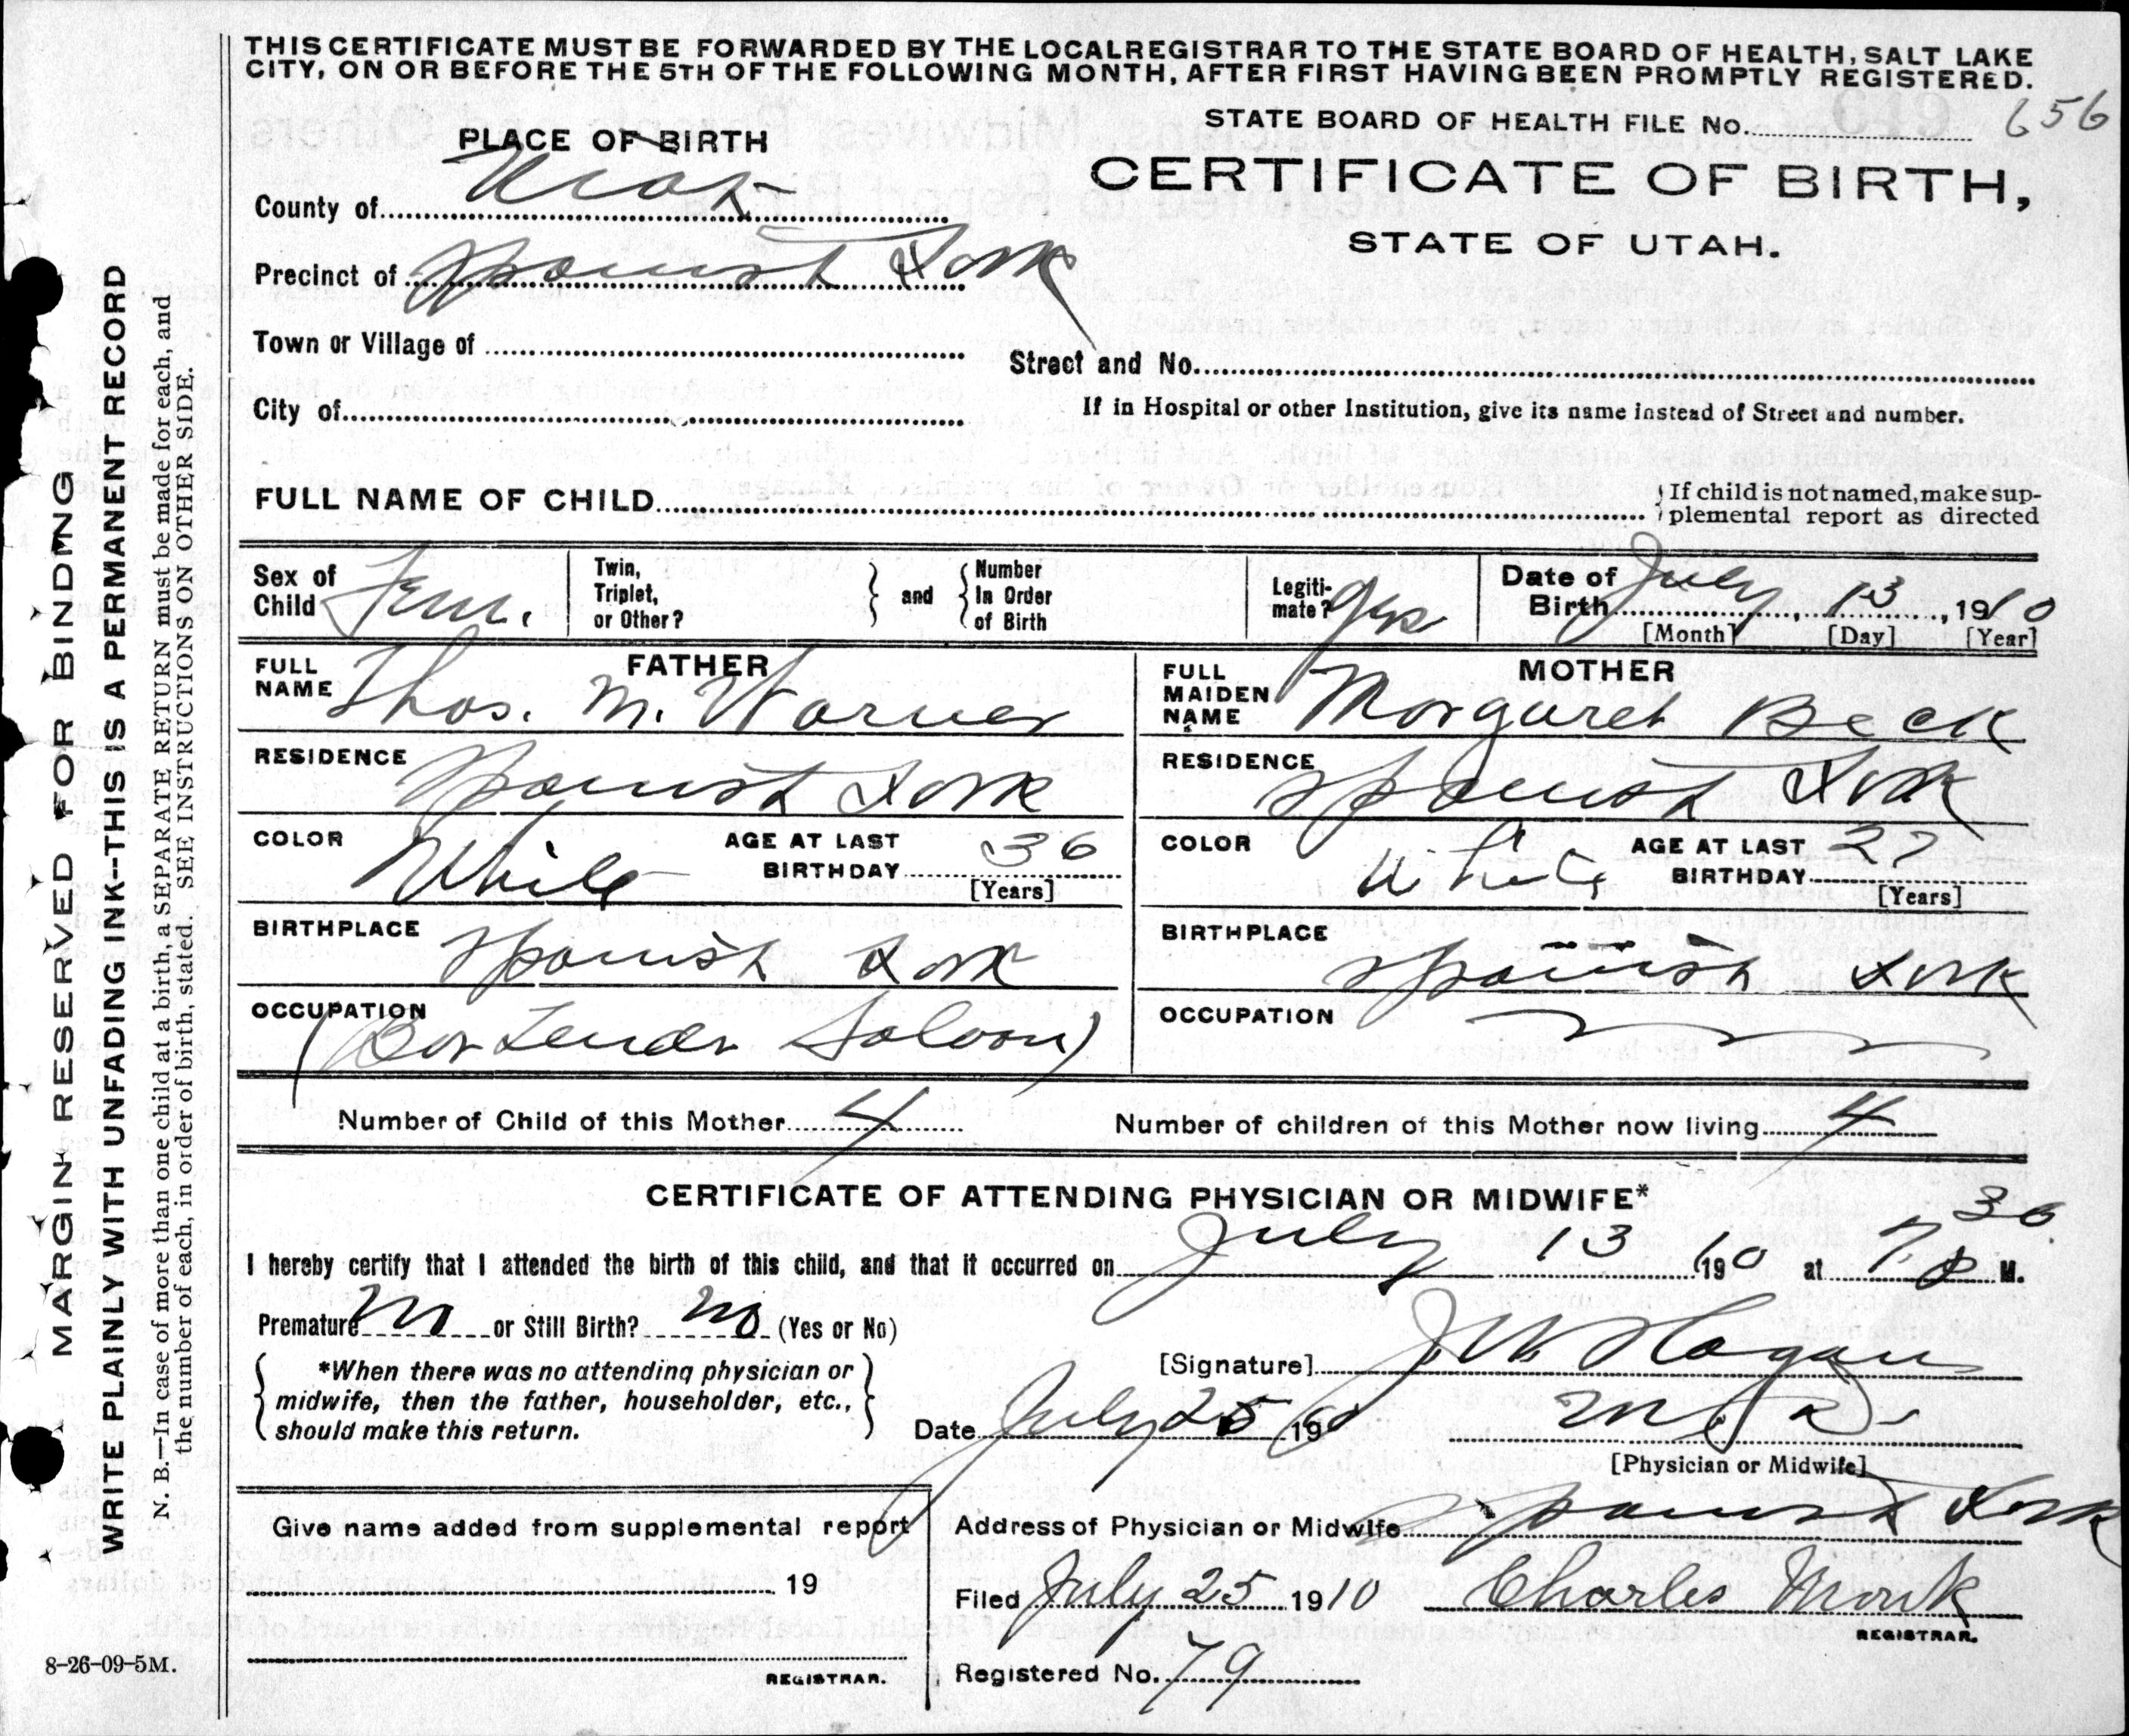 THIS CERTIFICATE MUST BE FORWARDED BY THE LOCAL REGISTRAR TO THE STATE BOARD OF HEALTH, SALT LAKE
CITY, ON OR BEFORE THE 5TH OF THE FOLLOWING MONTH, AFTER FIRST HAVING BEEN PROMPTLY REGISTERED.
STATE BOARD OF HEALTH FILE No. 656
CERTIFICATE OF BIRTH,
STATE OF UTAH.
PLACE OF BIRTH
County of Utah
Precinct of Spanish Fork
Town or Village of
Street and No.
City of
If in Hospital or other Institution, give its name instead of Street and number.
FULL NAME OF CHILD
If child is not named, make sup-
plemental report as directed
Sex of Child Fem.
Twin, Triplet, or Other?
and
Number In Order of Birth
Legiti-mate? yes
Date of Birth July 13, 1910
[Month] [Day] [Year]
FATHER
FULL NAME Thos. M. Warner
RESIDENCE Spanish Fork
COLOR White AGE AT LAST BIRTHDAY 36
[Years]
BIRTHPLACE Spanish Fork
OCCUPATION (Bar Tender Saloon)
MOTHER
FULL MAIDEN NAME Margaret Beck
RESIDENCE Spanish Fork
COLOR White AGE AT LAST BIRTHDAY 27
[Years]
BIRTHPLACE Spanish Fork
OCCUPATION
Number of Child of this Mother 4 Number of children of this Mother now living 4
CERTIFICATE OF ATTENDING PHYSICIAN OR MIDWIFE*
I hereby certify that I attended the birth of this child, and that it occurred on July 13 1910 at 7 30 P M.
Premature No or Still Birth? No (Yes or No)
*When there was no attending physician or
midwife, then the father, householder, etc.,
should make this return.
[Signature] J. W. Hagan
Date July 25 1910 M.D.
[Physician or Midwife]
Give name added from supplemental report
19
REGISTRAR.
Address of Physician or Midwife Spanish Fork
Filed July 25 1910 Charles Monk
REGISTRAR.
Registered No. 79
8-26-09-5M.
MARGIN RESERVED FOR BINDING
WRITE PLAINLY WITH UNFADING INK--THIS IS A PERMANENT RECORD
N. B.—In case of more than one child at a birth, a SEPARATE RETURN must be made for each, and
the number of each, in order of birth, stated. SEE INSTRUCTIONS ON OTHER SIDE.